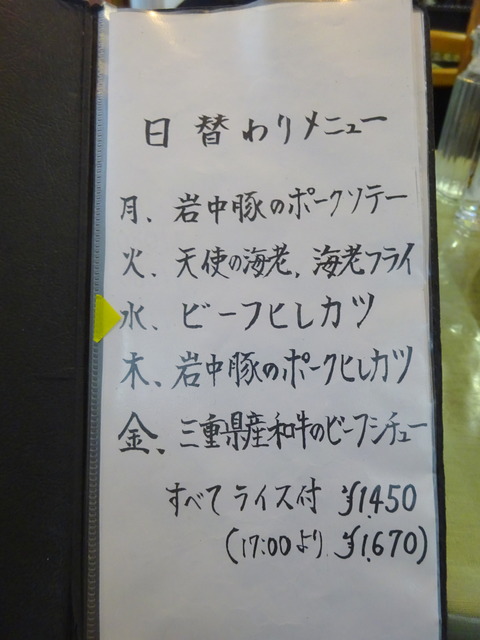 日替わりメニュー
月、岩中豚のポークソテー
火、天使の海老、海老フライ
水、ビーフヒレカツ
木、岩中豚のポークヒレカツ
金、三重県産和牛のビーフシチュー
すべてライス付 ¥1.450
(17:00より、¥1.670)